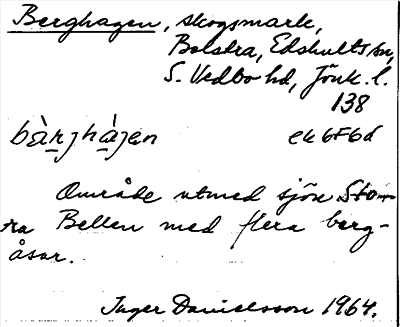 Berghagen, skogsmark,
Bolstra, Edshults sn,
S. Vedbo hd, Jönk. l.
138
bàrjhájen ek 6F6d
Område utmed sjön Sto-
ra Bellen med flera berg-
åsar.
Inger Danielsson 1964.